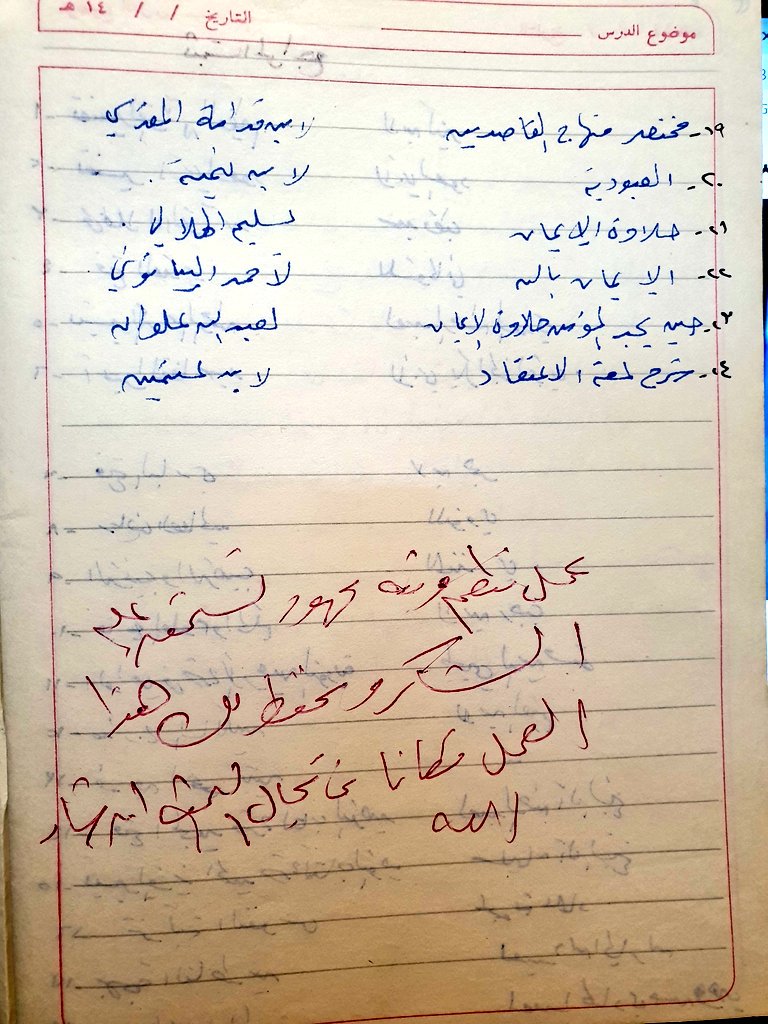 موضوع الدرس التاريخ / / ١٤ هـ
١٩- مختصر منهاج القاصدين لابن قدامة المقدسي
٢٠- العبودية لابن تيمية .
٢١- حلاوة الإيمان لسليم الهلالي .
٢٢- الإيمان بالله لأحمد البيانوني
٢٣- حين يجد المؤمن حلاوة الإيمان لعبد الله علوان
٢٤- شرح لمعة الاعتقاد لابن عثيمين
عمل منظم وفيه مجهود تستحق عليه
الشكر ونحفظ لك هذا
العمل مكانا في مجال البحث ان شاء
الله